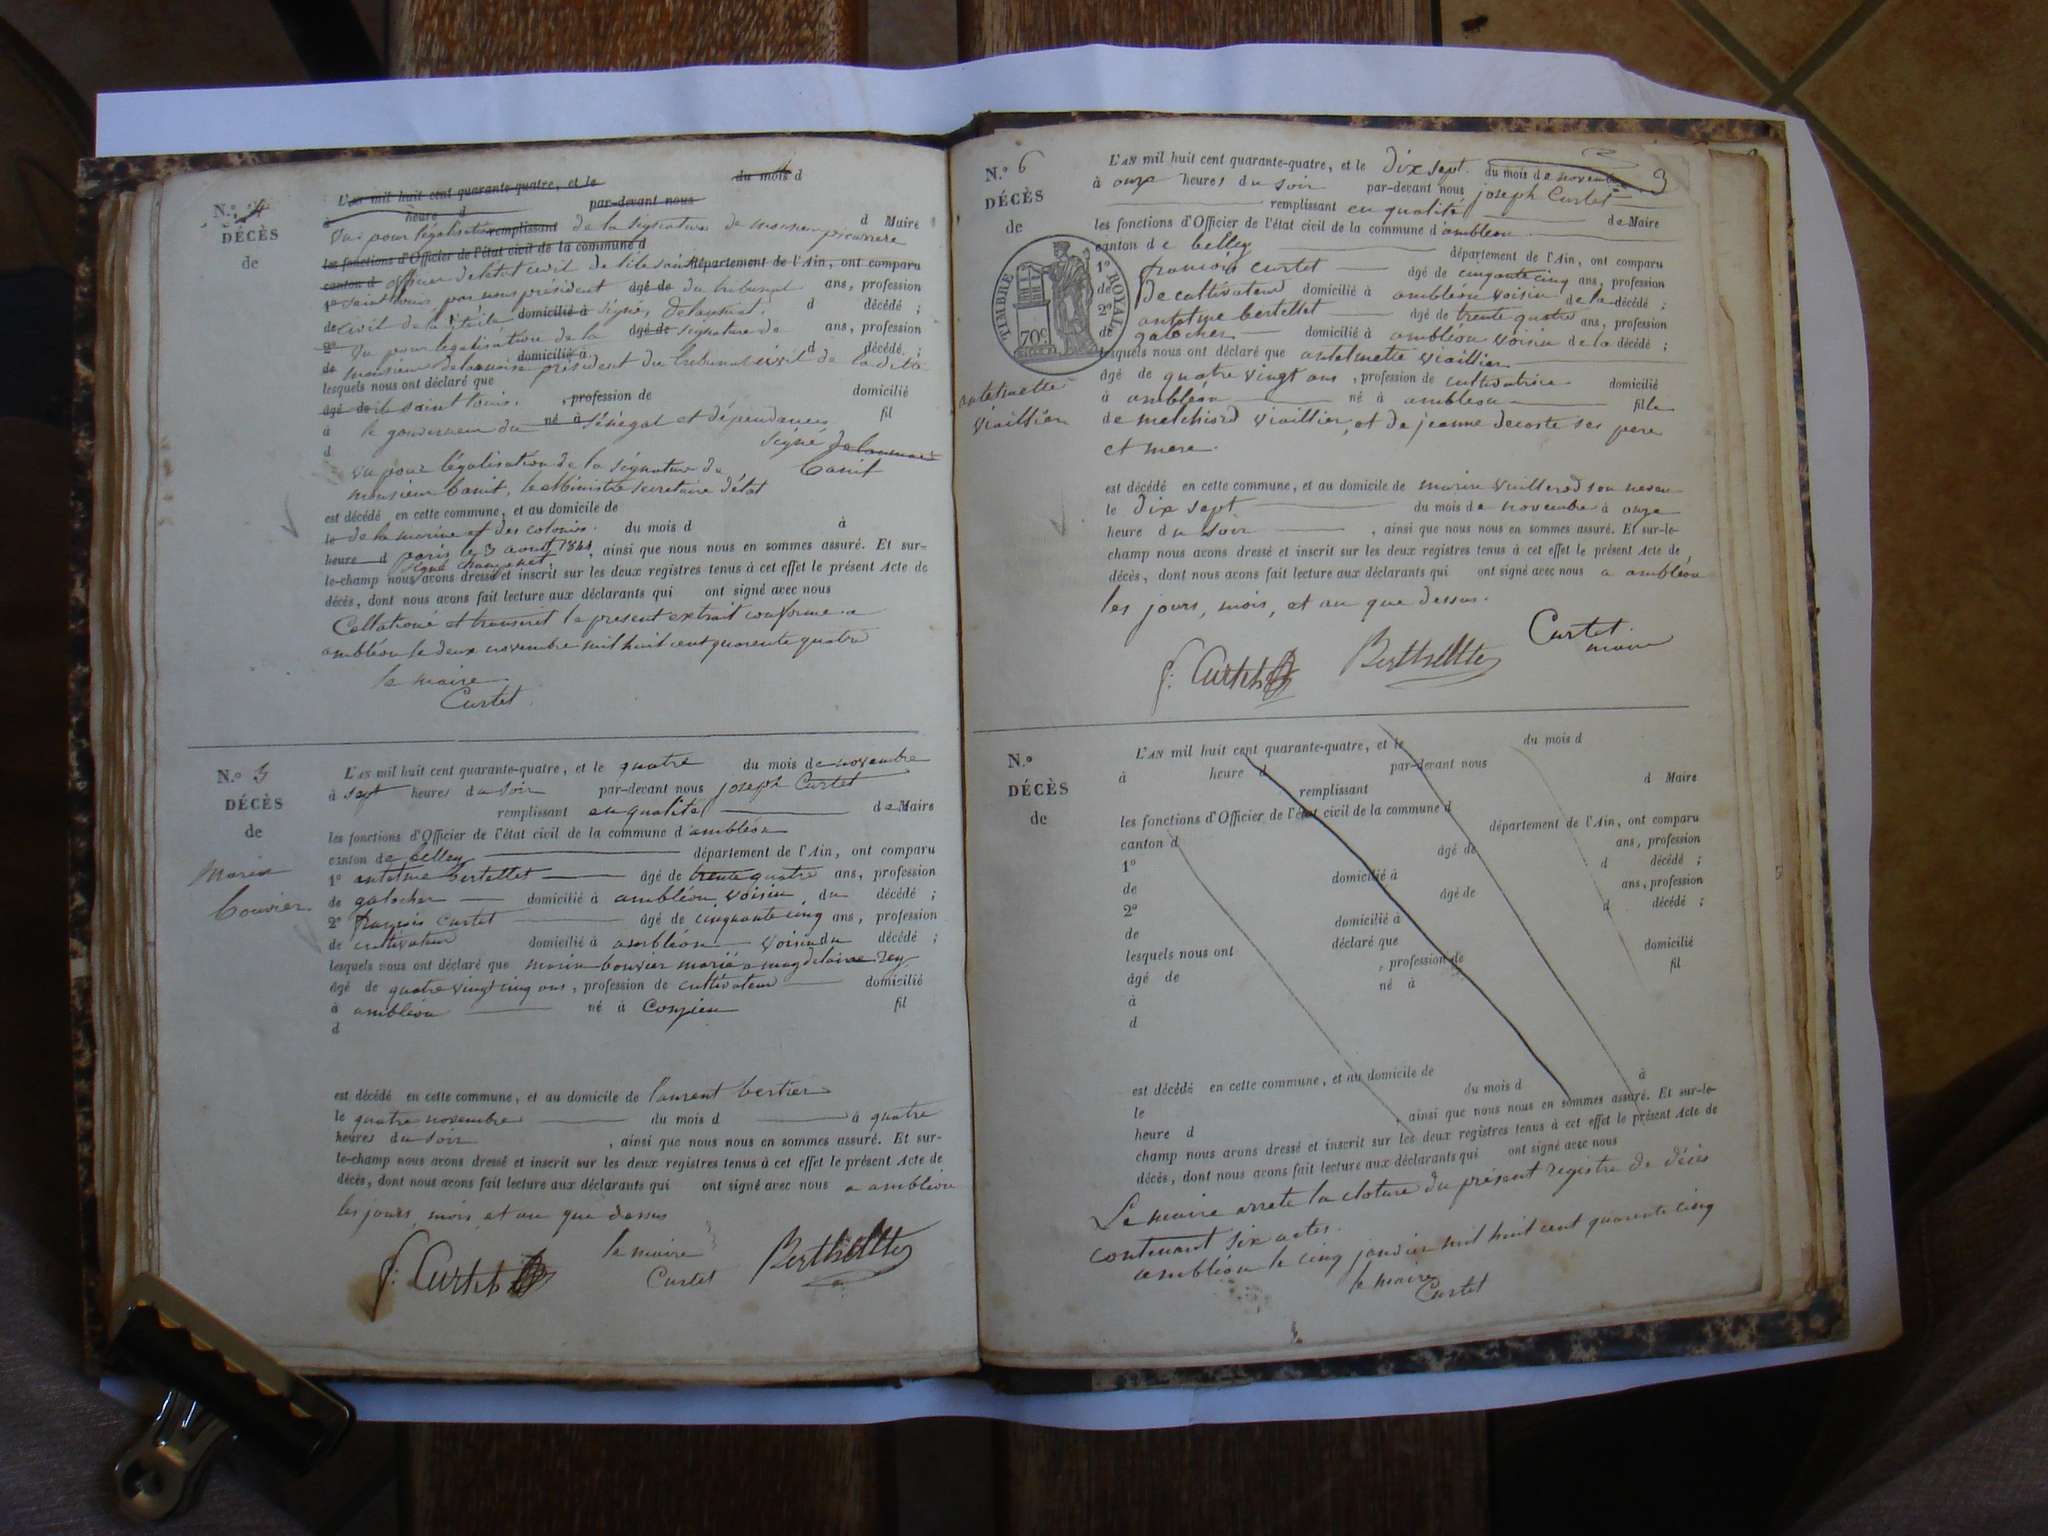 N.º 4
DÉCÈS
de
L'AN mil huit cent quarante-quatre, et le du mois d
à heure d par-devant nous
vu pour légalisation remplissant de la signature de monsieur d Maire
les fonctions d'Officier de l'état civil de la commune d
canton d officier de létat civil de lile saint département de l'Ain, ont comparu
1º saint louis par nous président âgé de du tribunal ans, profession
de civil de la domicilié à signé, d décédé ;
2º vu pour légalisation de la âgé de signature de ans, profession
de monsieur domicilié à président du tribunal civil de la dite d décédé ;
lesquels nous ont déclaré que
âgé de ile saint louis. , profession de domicilié
à le gouverneur du né à sénégal et dépendances fil
d signé
vu pour légalisation de la signature de
monsieur le Ministre secretaire d'état
est décédé en cette commune, et au domicile de
le de la marine et des colonies. du mois d à
heure d paris le 3 août 1844, ainsi que nous nous en sommes assuré. Et sur-
signé
le-champ nous avons dressé et inscrit sur les deux registres tenus à cet effet le présent Acte de
décès, dont nous avons fait lecture aux déclarants qui ont signé avec nous
Collationé et transcrit le present extrait conforme a
ambléon le deux novembre mil huit cent quarente quatre
le maire
Curtet
N.º 5
DÉCÈS
de
Marin
bouvier
L'AN mil huit cent quarante-quatre, et le quatre du mois de novembre
à sept heures du soir par-devant nous joseph Curtet
remplissant en qualité de Maire
les fonctions d'Officier de l'état civil de la commune d'ambléon
canton de belley département de l'Ain, ont comparu
1º antelme bertellet âgé de trente quatre ans, profession
de galocher domicilié à ambléon, voisin, du décédé ;
2º françois curtet âgé de cinquante cinq ans, profession
de cultivateur domicilié à ambléon voisin du décédé ;
lesquels nous ont déclaré que marin bouvier marié a magdelaine rey
âgé de quatre vingt cinq ans, profession de cultivateur domicilié
à ambléon né à Conzieu fil
d
est décédé en cette commune, et au domicile de laurent bertier
le quatre novembre du mois d à quatre
heures du soir , ainsi que nous nous en sommes assuré. Et sur-
le-champ nous avons dressé et inscrit sur les deux registres tenus à cet effet le présent Acte de
décès, dont nous avons fait lecture aux déclarants qui ont signé avec nous a ambléon
les jours, mois, et an que dessus
f: Curtet le maire Curtet Berthellet
N.º 6
DÉCÈS
de
TIMBRE ROYAL
70 c.
antelmette
viaillier
3
L'AN mil huit cent quarante-quatre, et le dix sept. du mois de novembre
à onze heures du soir par-devant nous joseph Curtet
remplissant en qualité de Maire
les fonctions d'Officier de l'état civil de la commune d'ambléon
canton de belley département de l'Ain, ont comparu
1º françois curtet âgé de cinquante cinq ans, profession
de cultivateur domicilié à ambléon voisin de la décédé ;
2º antelme bertellet âgé de trente quatre ans, profession
de galocher domicilié à ambléon voisin de la décédé ;
lesquels nous ont déclaré que antelmette viaillier
âgé de quatre vingt ans , profession de cultivatrice domicilié
à ambléon né à ambléon fille
de melchiord viaillier, et de jeanne decoste ses pere
et mere.
est décédé en cette commune, et au domicile de marin son neveu
le dix sept. du mois de novembre à onze
heure du soir , ainsi que nous nous en sommes assuré. Et sur-le-
champ nous avons dressé et inscrit sur les deux registres tenus à cet effet le présent Acte de
décès, dont nous avons fait lecture aux déclarants qui ont signé avec nous a ambléon
les jours, mois, et an que dessus.
f: Curtet Berthellet Curtet maire
N.º
DÉCÈS
de
L'AN mil huit cent quarante-quatre, et le du mois d
à heure d par-devant nous
remplissant d Maire
les fonctions d'Officier de l'état civil de la commune d
canton d département de l'Ain, ont comparu
1º âgé de ans, profession
de domicilié à d décédé ;
2º âgé de ans, profession
de domicilié à d décédé ;
lesquels nous ont déclaré que
âgé de , profession de domicilié
à né à fil
d
est décédé en cette commune, et au domicile de
le du mois d à
heure d , ainsi que nous nous en sommes assuré. Et sur-le-
champ nous avons dressé et inscrit sur les deux registres tenus à cet effet le présent Acte de
décès, dont nous avons fait lecture aux déclarants qui ont signé avec nous
Le maire arrete la cloture du présent registre de décès
contenant six actes.
ambléon le cinq janvier mil huit cent quarente cinq
le maire
Curtet